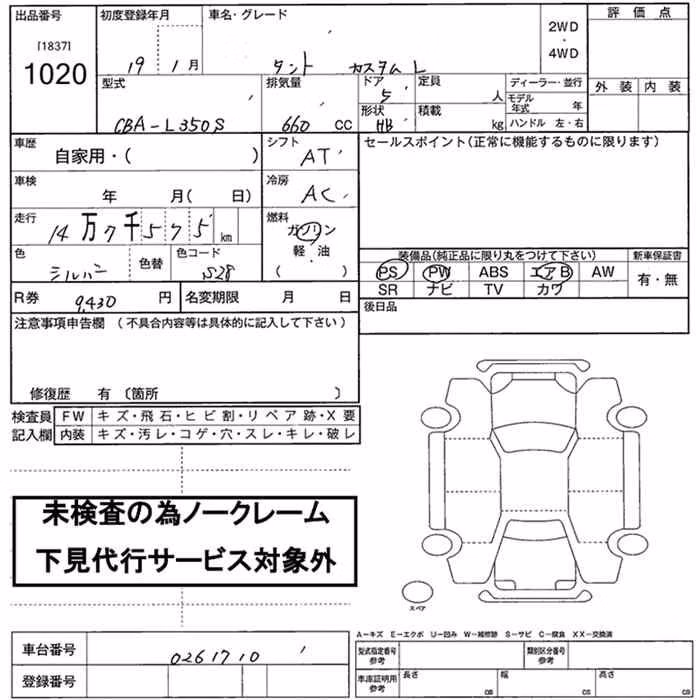 出品番号 初度登録年月 車名・グレード 2WD・4WD 評価点
[1837]
1020 19 1月 タント カスタム L
外装 内装
型式 排気量 ドア 定員 ディーラー・並行
CBA-L350S 660 CC 5 人 モデル年式 年
形状 積載
HB kg ハンドル 左・右
車歴 シフト セールスポイント(正常に機能するものに限ります)
自家用・( ) AT
車検 冷房
年 月( 日) AC
走行 燃料
14万7千575 km ガソリン
軽・油
( )
色 色替 色コード 装備品(純正品に限り丸をつけて下さい) 新車保証書
シルバー S28 PS PW ABS エアB AW 有・無
SR ナビ TV カワ
R券 9,430 円 名変期限 月 日 後日品
注意事項申告欄 (不具合内容等は具体的に記入して下さい)
修復歴 有〔箇所 〕
検査員 FW キズ・飛石・ヒビ割・リペア跡・X要
記入欄 内装 キズ・汚レ・コゲ・穴・スレ・キレ・破レ
未検査の為ノークレーム
下見代行サービス対象外
スペア
A-キズ E-エクボ U-凹み W-補修跡 S-サビ C-腐食 XX-交換済
車台番号 0261710
型式指定番号参考 類別区分番号参考
登録番号
車庫証明用参考 長さ cm 幅 cm 高さ cm